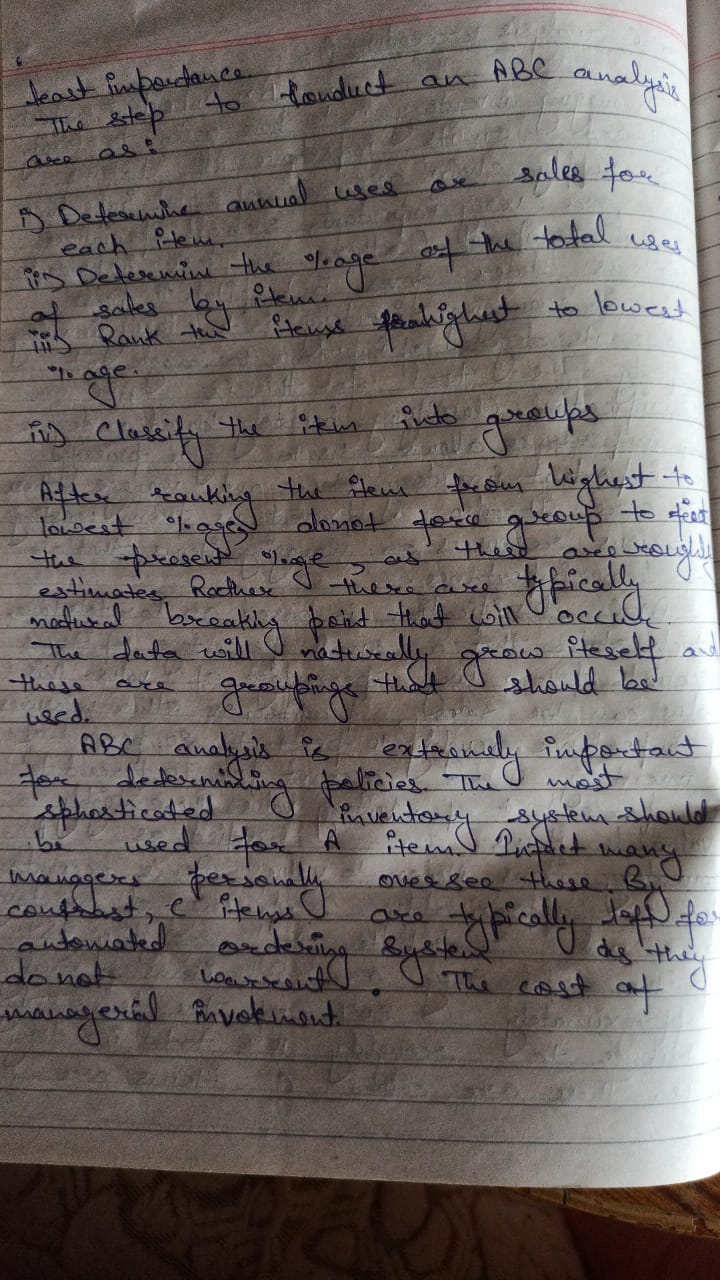 least importance.
The step to Conduct an ABC analysis
are as:
i) Determine annual uses or sales for
each item.
ii) Determine the %age of the total uses
of sales by item.
iii) Rank the items highest to lowest
%age.
iv) Classify the item into groups
After ranking the item from highest to
lowest %age, donot force group to
the present %age, as these are roughly
estimates. Rather there are typically
natural breaking point that will occur.
The data will naturally grow iteself and
these are groupings that should be
used.
ABC analysis is extremely important
for determinding policies. The most
sphosticated inventory system should
be used for A item. Infact many
managers personally oversee these. By
contrast, C items are typically left for
automated ordering system as they
do not warrent. The cost of
managerial invokment.